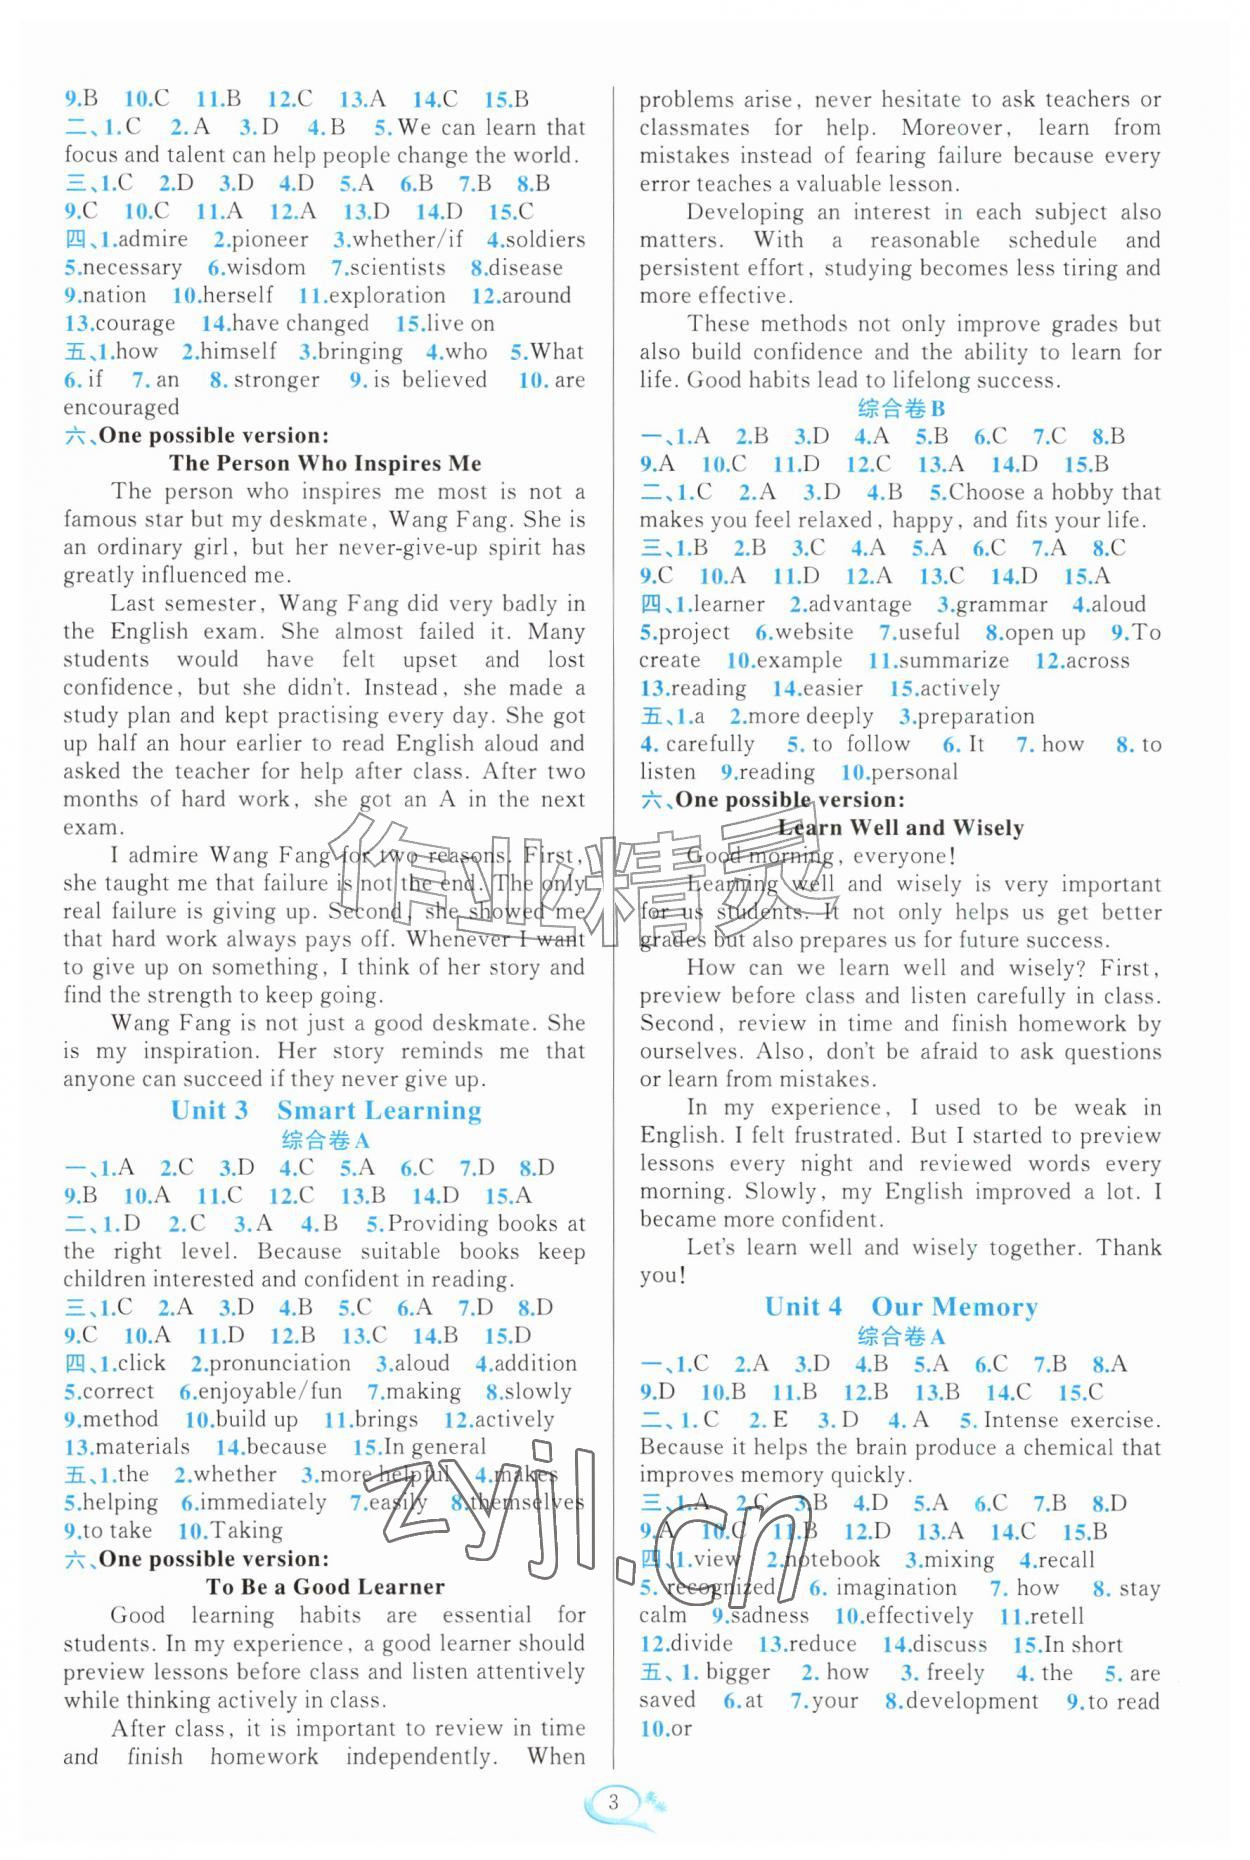 9.B 10.C 11.B 12.C 13.A 14.C 15.B
二、1.C 2.A 3.D 4.B 5.We can learn that
focus and talent can help people change the world.
三、1.C 2.D 3.D 4.D 5.A 6.B 7.B 8.B
9.C 10.C 11.A 12.A 13.D 14.D 15.C
四、1.admire 2.pioneer 3.whether/if 4.soldiers
5.necessary 6.wisdom 7.scientists 8.disease
9.nation 10.herself 11.exploration 12.around
13.courage 14.have changed 15.live on
五、1.how 2.himself 3.bringing 4.who 5.What
6. if 7. an 8. stronger 9. is believed 10. are
encouraged
六、One possible version:
The Person Who Inspires Me
The person who inspires me most is not a
famous star but my deskmate, Wang Fang. She is
an ordinary girl, but her never-give-up spirit has
greatly influenced me.
Last semester, Wang Fang did very badly in
the English exam. She almost failed it. Many
students would have felt upset and lost
confidence, but she didn't. Instead, she made a
study plan and kept practising every day. She got
up half an hour earlier to read English aloud and
asked the teacher for help after class. After two
months of hard work, she got an A in the next
exam.
I admire Wang Fang for two reasons. First,
she taught me that failure is not the end. The only
real failure is giving up. Second, she showed me
that hard work always pays off. Whenever I want
to give up on something, I think of her story and
find the strength to keep going.
Wang Fang is not just a good deskmate. She
is my inspiration. Her story reminds me that
anyone can succeed if they never give up.
Unit 3 Smart Learning
综合卷A
一、1.A 2.C 3.D 4.C 5.A 6.C 7.D 8.D
9.B 10.A 11.C 12.C 13.B 14.D 15.A
二、1.D 2.C 3.A 4.B 5.Providing books at
the right level. Because suitable books keep
children interested and confident in reading.
三、1.C 2.A 3.D 4.B 5.C 6.A 7.D 8.D
9.C 10.A 11.D 12.B 13.C 14.B 15.D
四、1.click 2.pronunciation 3.aloud 4.addition
5.correct 6.enjoyable/fun 7.making 8.slowly
9.method 10.build up 11.brings 12.actively
13.materials 14.because 15.In general
五、1.the 2.whether 3.more helpful 4.makes
5.helping 6.immediately 7.easily 8.themselves
9.to take 10.Taking
六、One possible version:
To Be a Good Learner
Good learning habits are essential for
students. In my experience, a good learner should
preview lessons before class and listen attentively
while thinking actively in class.
After class, it is important to review in time
and finish homework independently. When
problems arise, never hesitate to ask teachers or
classmates for help. Moreover, learn from
mistakes instead of fearing failure because every
error teaches a valuable lesson.
Developing an interest in each subject also
matters. With a reasonable schedule and
persistent effort, studying becomes less tiring and
more effective.
These methods not only improve grades but
also build confidence and the ability to learn for
life. Good habits lead to lifelong success.
综合卷B
一、1.A 2.B 3.D 4.A 5.B 6.C 7.C 8.B
9.A 10.C 11.D 12.C 13.A 14.D 15.B
二、1.C 2.A 3.D 4.B 5.Choose a hobby that
makes you feel relaxed, happy, and fits your life.
三、1.B 2.B 3.C 4.A 5.A 6.C 7.A 8.C
9.C 10.A 11.D 12.A 13.C 14.D 15.A
四、1.learner 2.advantage 3.grammar 4.aloud
5.project 6.website 7.useful 8.open up 9.To
create 10.example 11.summarize 12.across
13.reading 14.easier 15.actively
五、1.a 2.more deeply 3.preparation
4. carefully 5. to follow 6. It 7. how 8. to
listen 9.reading 10.personal
六、One possible version:
Learn Well and Wisely
Good morning, everyone!
Learning well and wisely is very important
for us students. It not only helps us get better
grades but also prepares us for future success.
How can we learn well and wisely? First,
preview before class and listen carefully in class.
Second, review in time and finish homework by
ourselves. Also, don't be afraid to ask questions
or learn from mistakes.
In my experience, I used to be weak in
English. I felt frustrated. But I started to preview
lessons every night and reviewed words every
morning. Slowly, my English improved a lot. I
became more confident.
Let's learn well and wisely together. Thank
you!
Unit 4 Our Memory
综合卷A
一、1.C 2.A 3.D 4.B 5.A 6.C 7.B 8.A
9.D 10.B 11.B 12.B 13.B 14.C 15.C
二、1. C 2. E 3. D 4. A 5. Intense exercise.
Because it helps the brain produce a chemical that
improves memory quickly.
三、1.A 2.C 3.B 4.D 5.A 6.C 7.B 8.D
9.A 10.C 11.B 12.D 13.A 14.C 15.B
四、1.view 2.notebook 3.mixing 4.recall
5. recognized 6. imagination 7. how 8. stay
calm 9.sadness 10.effectively 11.retell
12.divide 13.reduce 14.discuss 15.In short
五、1. bigger 2. how 3. freely 4. the 5. are
saved 6.at 7.your 8.development 9.to read
10.or
3
作业精灵
zyjl.cn